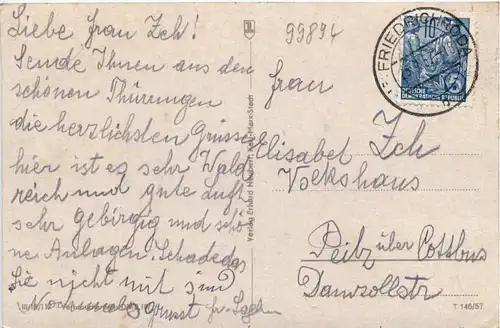 Liebe Frau Zch!
Sende Ihnen aus den
schönen Thüringen
die herzlichsten Grüsse
hier ist es sehr Wald
reich und gute Luft
sehr gebirgig und schö
ne Anlagen. Schade das
Sie nicht mit sind
grüsst fr.
99894
Frau
Elisabet Zch
Volkshaus
Peitz über Cottbus
Dammzollstr
FRIEDRICHRODA
DEUTSCHE
DEMOKRATISCHE REPUBLIK
Verlag Erhard Neubert, Karl-Marx-Stadt
T 146/57